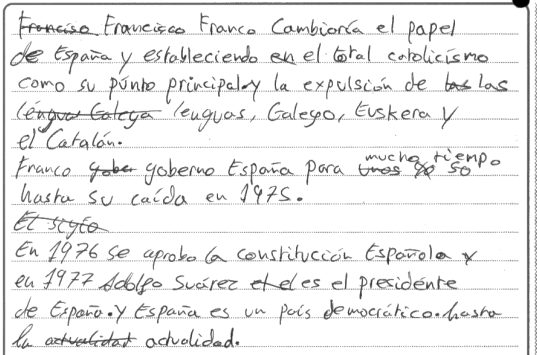 Francisco Francisco Franco Cambioría el papel
de España y estableciendo en el total catolicismo
como su púnto principal y la expulsión de las las
lenguas Galega lenguas, Galego, Euskera y
el Catalán.
Franco gober goberno España para mucho tiempo
hasta su caída en 1975.
El siglo
En 1976 se aprobo la constitución Española y
en 1977 Adolfo Suárez el el es el presidente
de España. Y España es un país democrático. hasta
la actualidat actualidad.